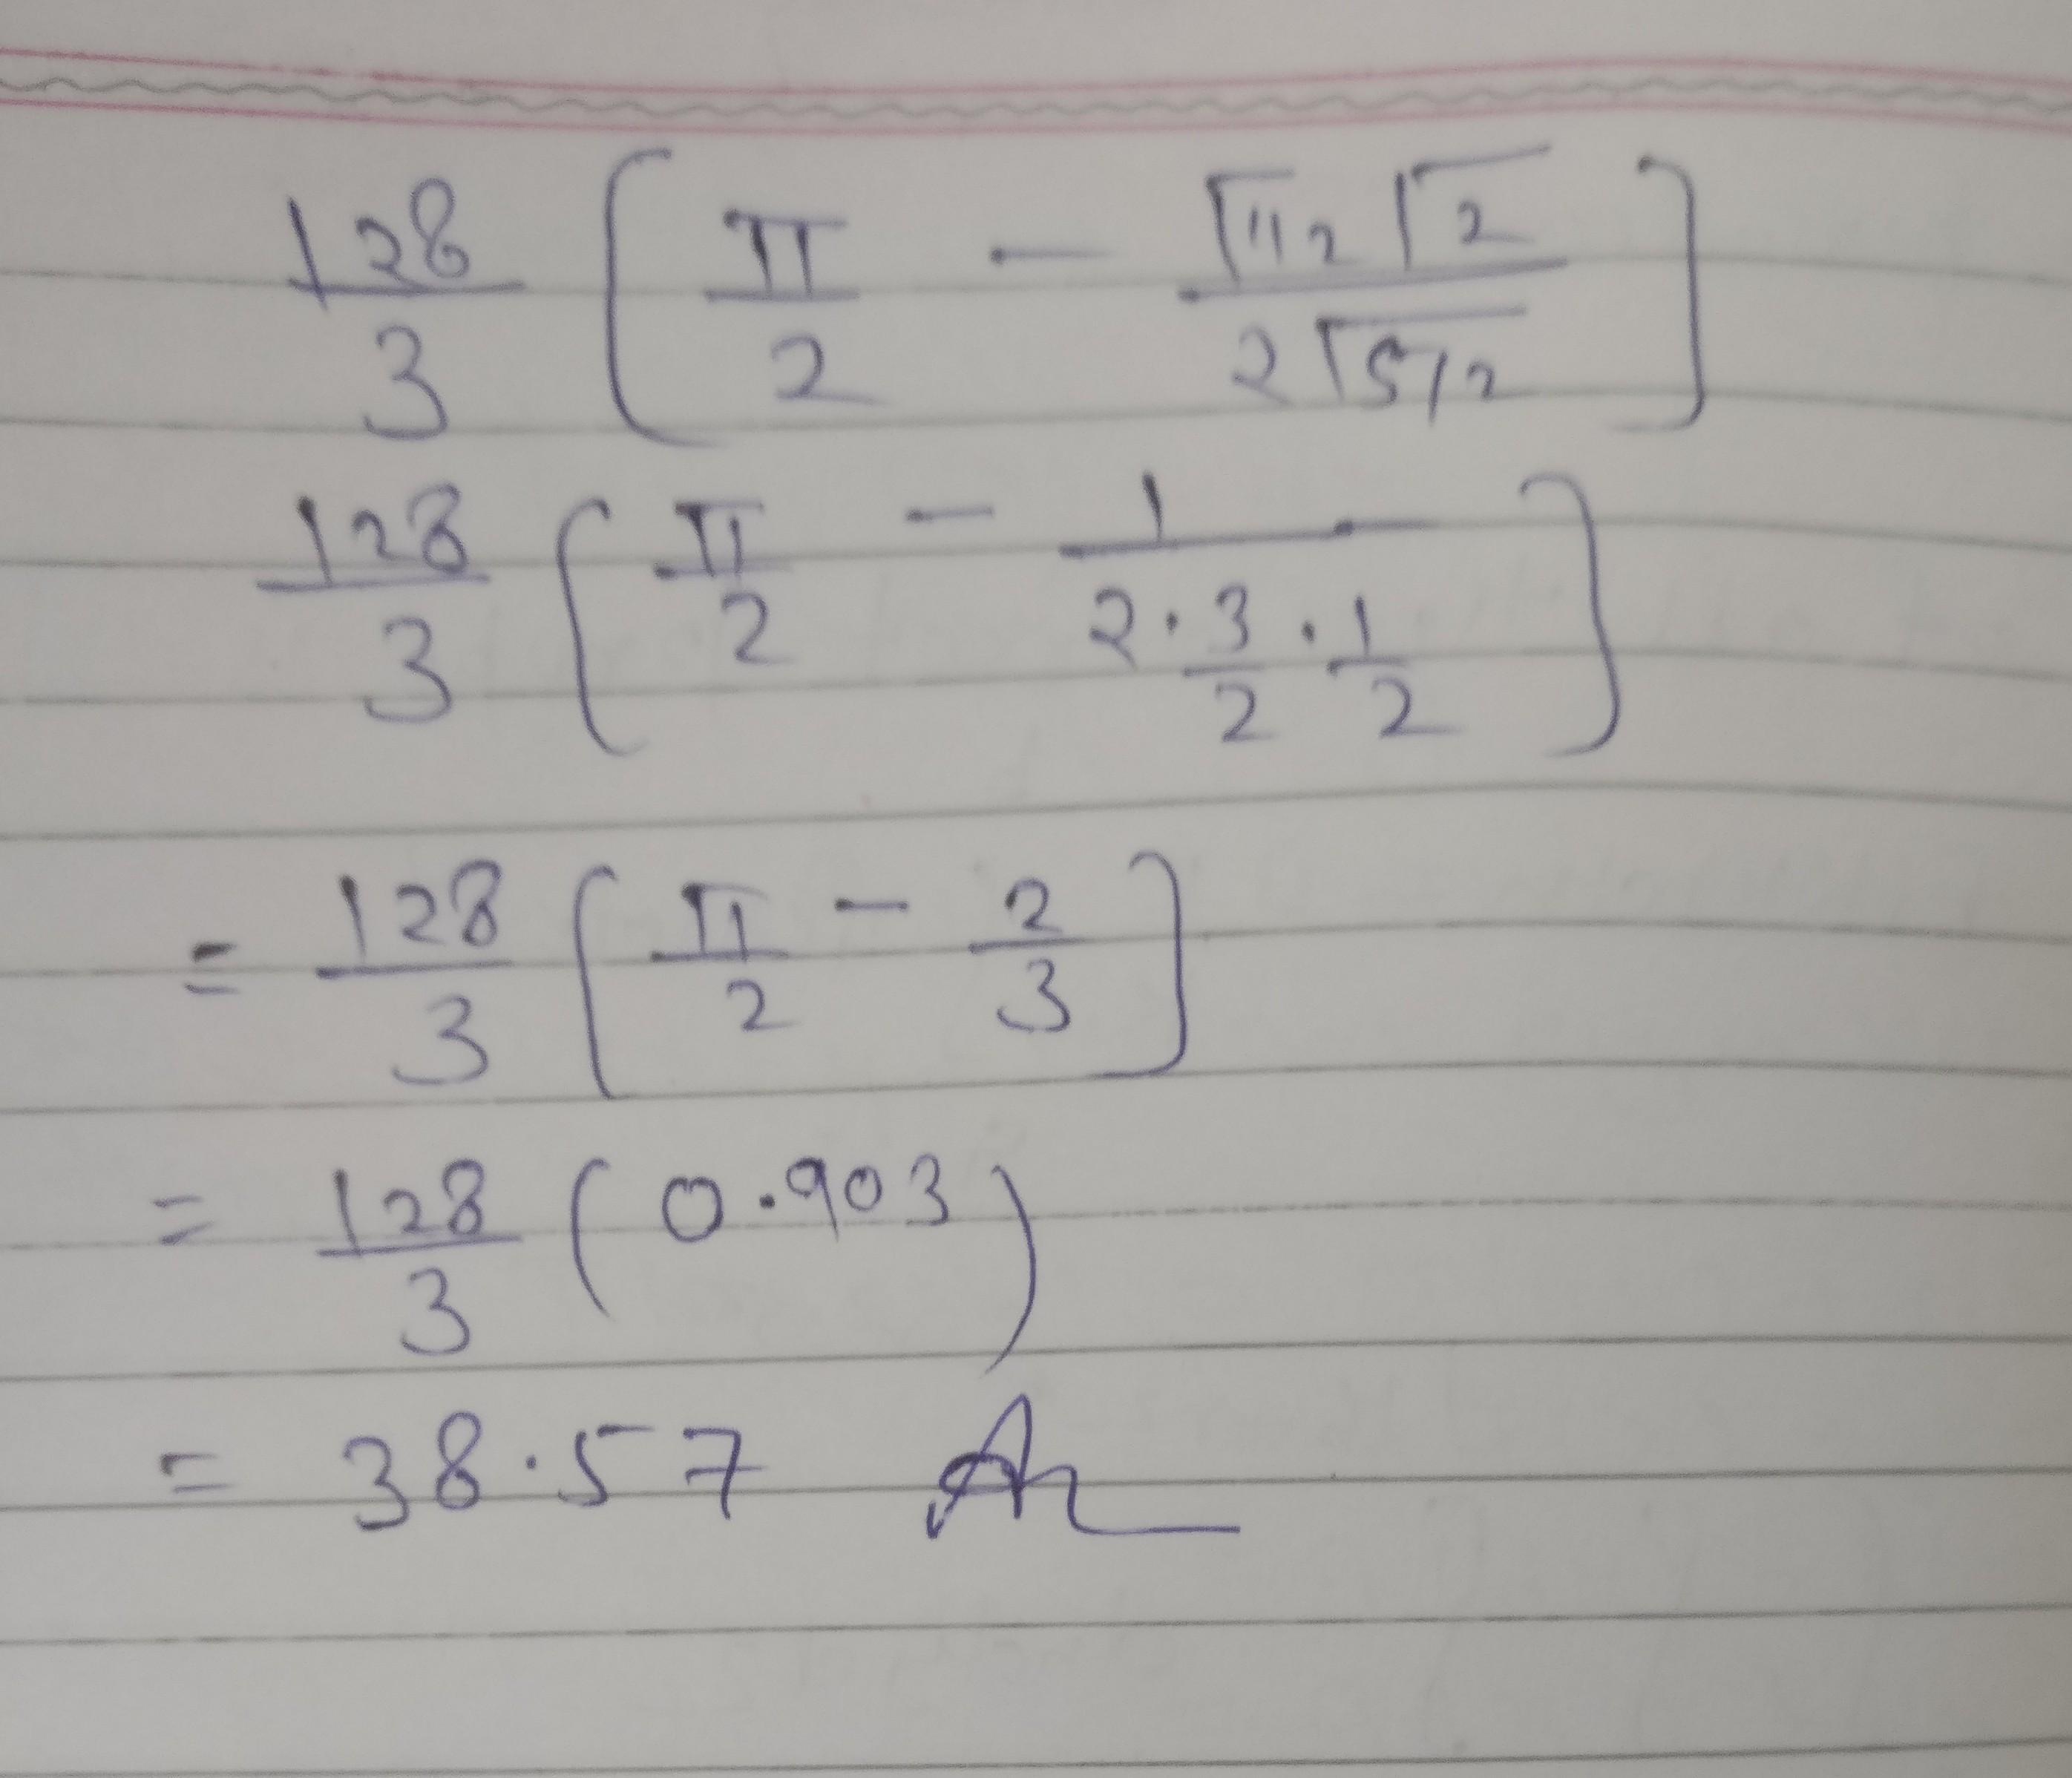 128/3 [ π/2 - √1/2 √2 / 2√5/2 ]
128/3 [ π/2 - 1 / 2·3/2·1/2 ]
= 128/3 [ π/2 - 2/3 ]
= 128/3 (0.903)
= 38.57 An